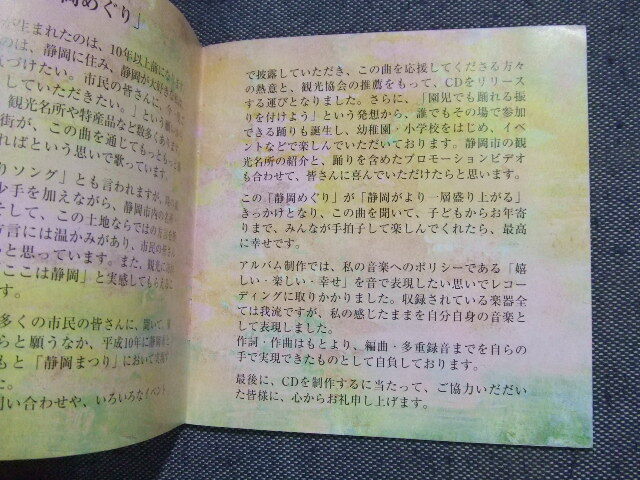 岡めぐり」
が生まれたのは、10年以上前になります
のは、静岡に住み、静岡が大好き
づけたい。市民の皆さんに、
していただきたい。」という
観光名所や特産品など数多くあります
街が、この曲を通じてもっともっと
ればという思いで歌っています。
りソング」とも言われますが、
少手を加えながら、静岡市内の名所
そして、この土地ならではの方言
方言には温かみがあり、市民の皆さん
っと思っています。また、観光に
ここは静岡」と実感してもらえ
す。
多くの市民の皆さんに、聞いて、
らと願うなか、平成10年に静岡
もと「静岡まつり」において実
た。
問い合わせや、いろいろなイベント
で披露していただき、この曲を応援してくださる方々
の熱意と、観光協会の推薦をもって、CDをリリース
する運びとなりました。さらに、「園児でも踊れる振
りを付けよう」という発想から、誰でもその場で参加
できる踊りも誕生し、幼稚園・小学校をはじめ、イベ
ントなどで楽しんでいただいております。静岡市の観
光名所の紹介と、踊りを含めたプロモーションビデオ
も合わせて、皆さんに喜んでいただけたらと思います。
この「静岡めぐり」が「静岡がより一層盛り上がる」
きっかけとなり、この曲を聞いて、子どもからお年寄
りまで、みんなが手拍子で楽しんでくれたら、最高
に幸せです。
アルバム制作では、私の音楽へのポリシーである「嬉
しい・楽しい・幸せ」を音で表現したい思いでレコー
ディングに取りかかりました。収録されている楽器全
ては我流ですが、私の感じたままを自分自身の音楽と
して表現しました。
作詞・作曲はもとより、編曲・多重録音までを自らの
手で実現できたものとして自負しております。
最後に、CDを制作するに当たって、ご協力いだだい
た皆様に、心からお礼申し上げます。